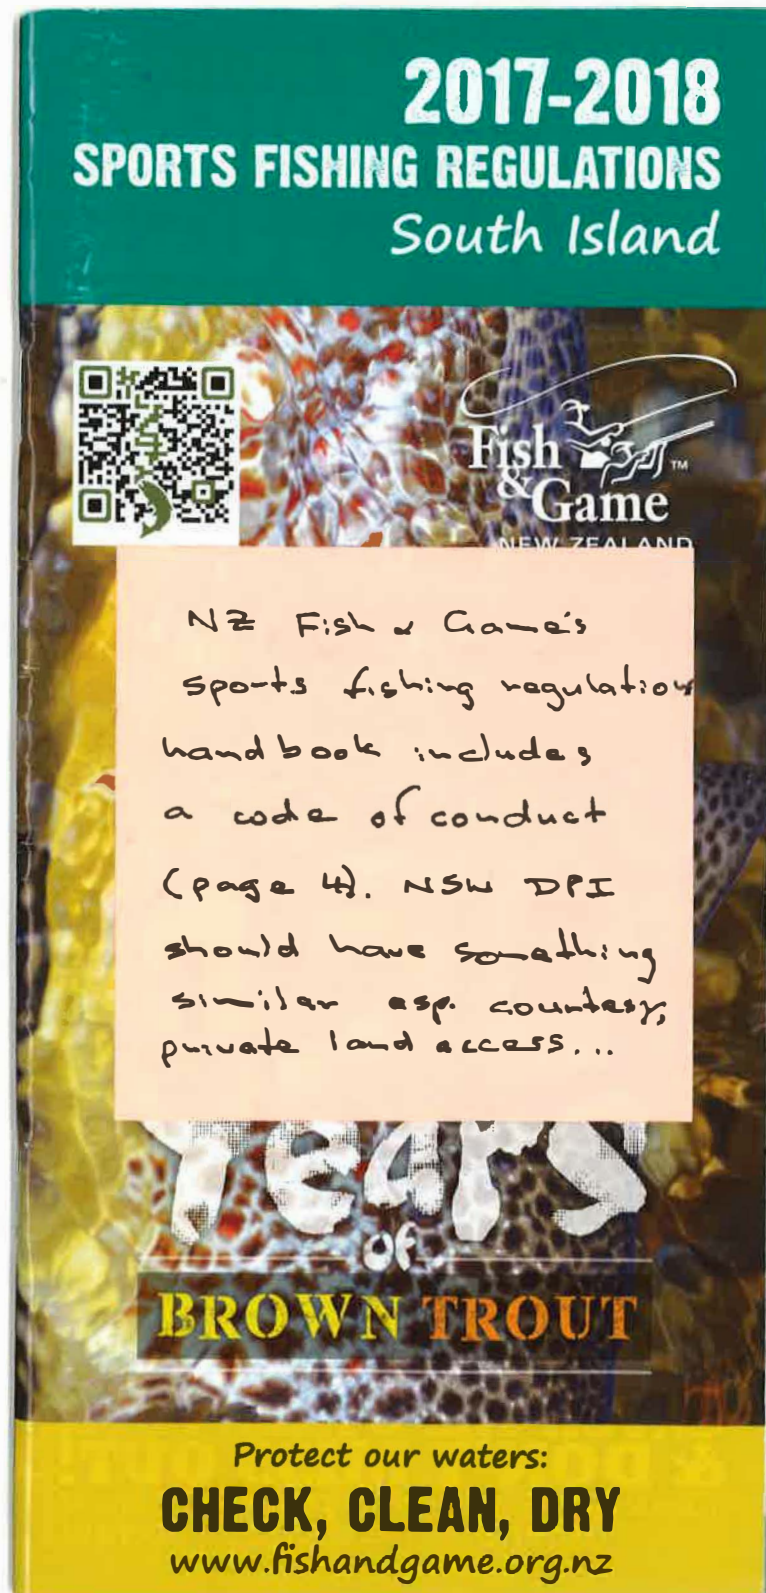 2017-2018
SPORTS FISHING REGULATIONS
South Island
Fish
& Game
™
NEW ZEALAND
NZ Fish & Game's
sports fishing regulation
handbook includes
a code of conduct
(page 4). NSW DPI
should have something
similar esp. courtesy,
private land access...
YEARS
of
BROWN TROUT
Protect our waters:
CHECK, CLEAN, DRY
www.fishandgame.org.nz